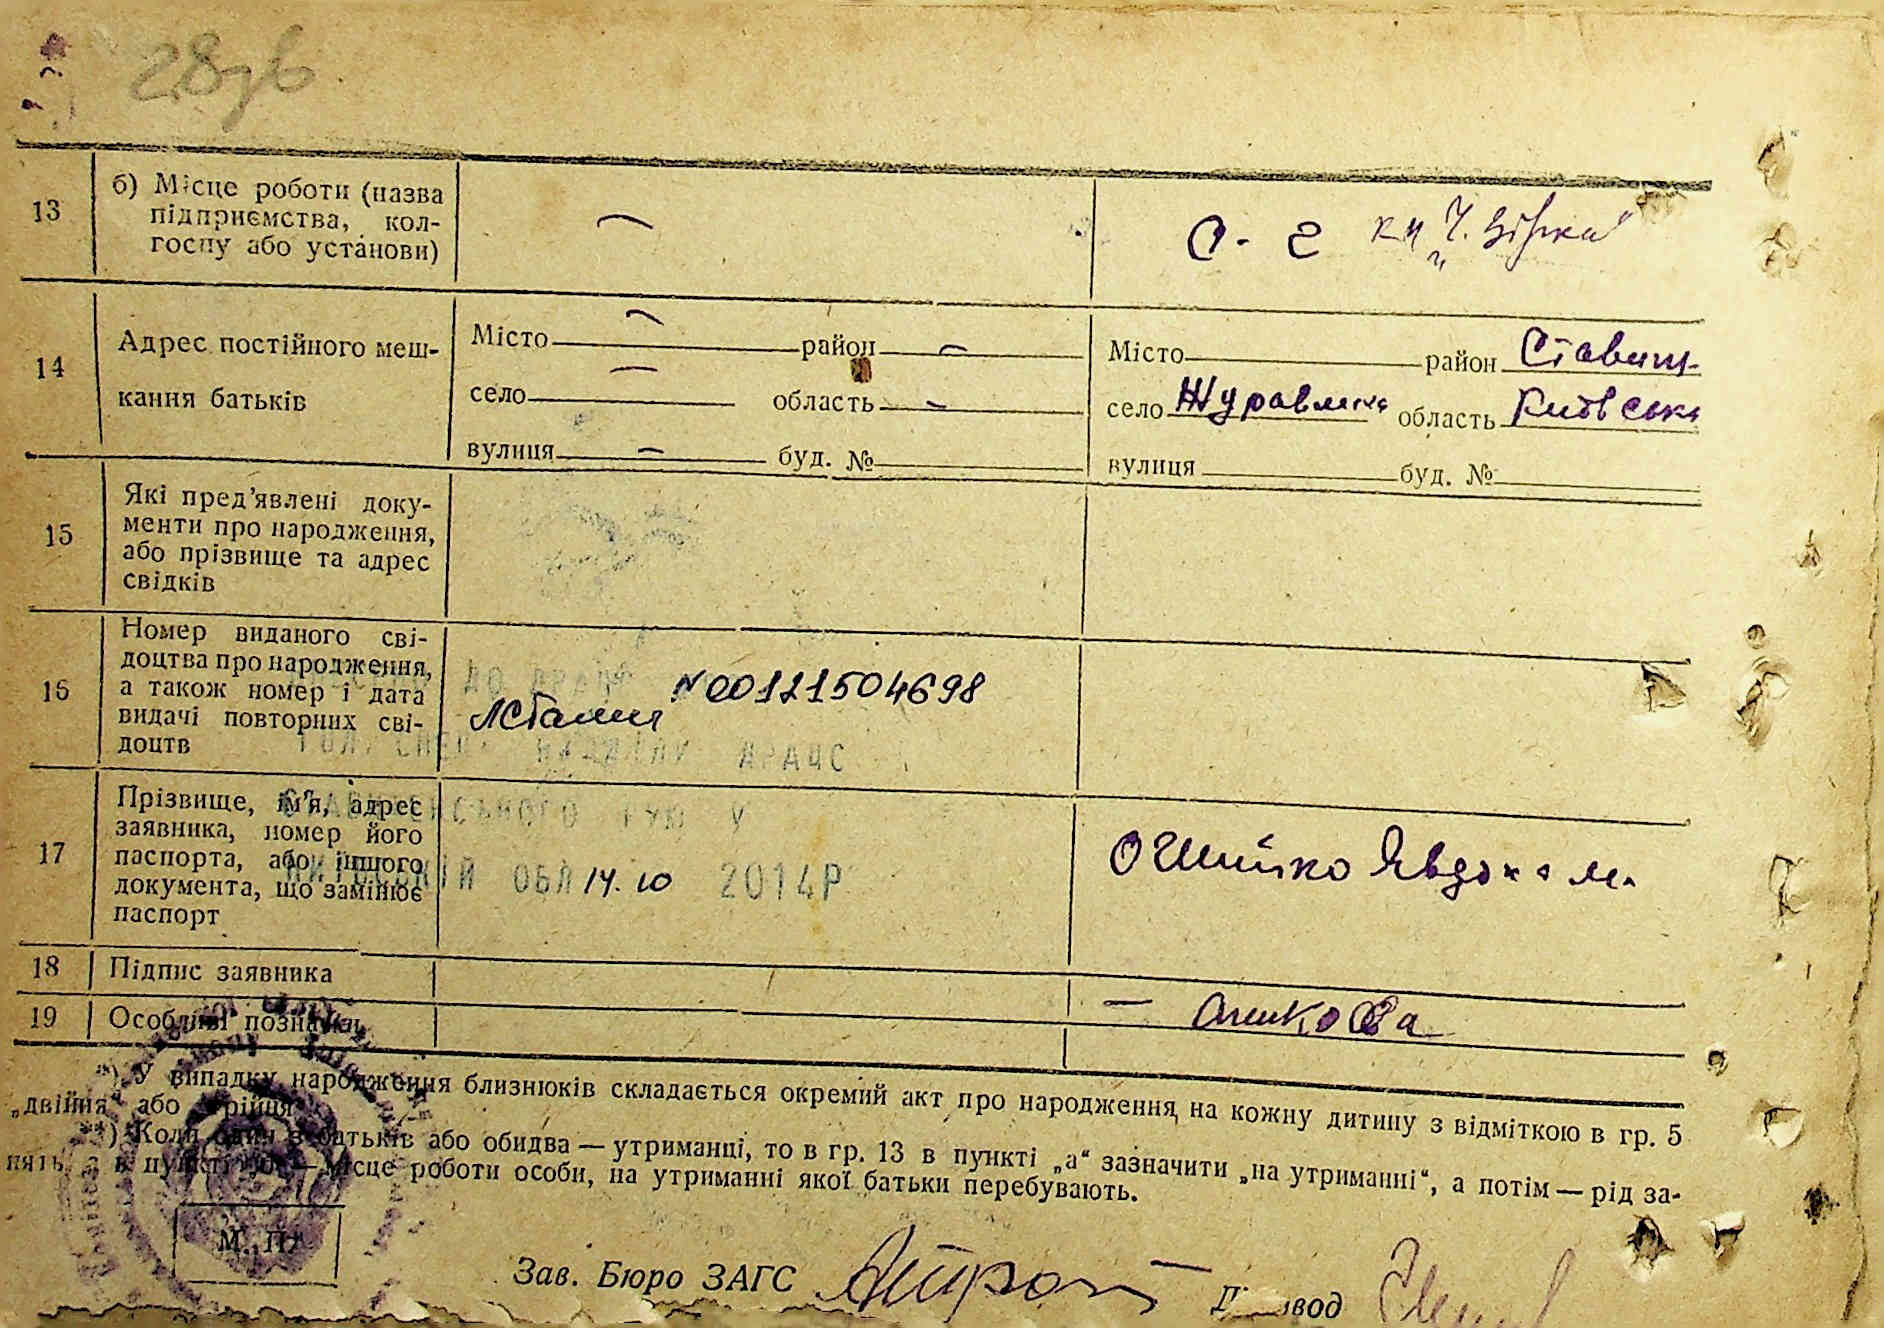 28
13
б) Місце роботи (назва
підприємства, кол-
госпу або установи)
14
Адрес постійного меш-
кання батьків
Місто район
село область
вулиця буд. №
Місто район Ставищ-
село Журавлиха область Київська
вулиця буд. №
15
Які пред’явлені доку-
менти про народження,
або прізвище та адрес
свідків
16
Номер виданого сві-
доцтва про народження,
а також номер і дата
видачі повторних сві-
доцтв
N00121504698
ДО ДРАЦС
ВІДДІЛУ ДРАЦС
17
Прізвище, ім’я, адрес
заявника, номер його
паспорта, або іншого
документа, що замінює
паспорт
СТАВИЩЕНСЬКОГО РУЮ У
КИЇВСЬКІЙ ОБЛ 14.10 2014Р
Явдоха М.
18
Підпис заявника
19
Особливі позначки
*) У випадку народження близнюків складається окремий акт про народження на кожну дитину з відміткою в гр. 5
„двійня“ або „трійця“
**) Коли один з батьків або обидва — утриманці, то в гр. 13 в пункті „а“ зазначити „на утриманні“, а потім — рід за-
нять, а в пункті „б“ — місце роботи особи, на утриманні якої батьки перебувають.
М. П.
Зав. Бюро ЗАГС